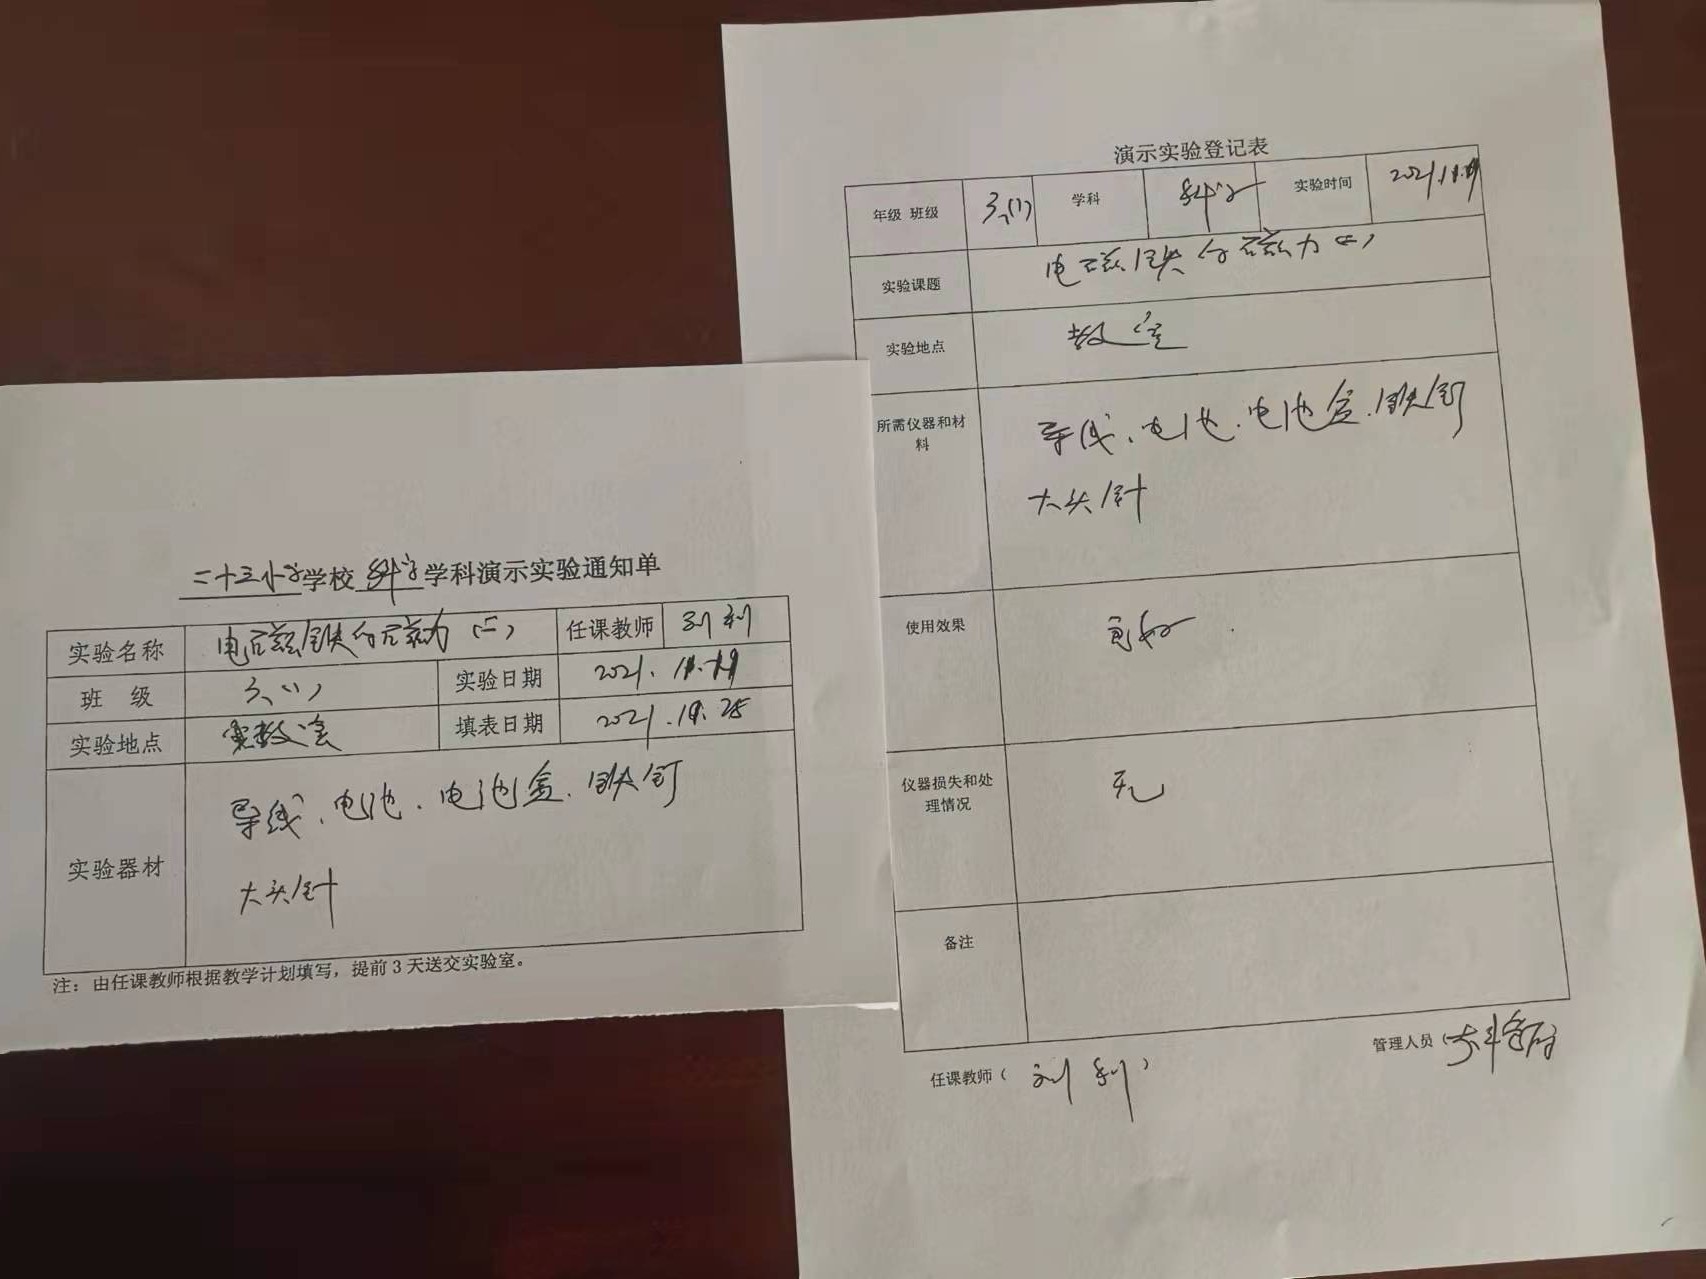 二十三小学学校 科学 学科演示实验通知单
实验名称 电磁铁的磁力(二) 任课教师 刘利
班 级 六(1) 实验日期 2021.11.19
实验地点 教室 填表日期 2021.
实验器材 导线、电池、电池盒、铁钉
大头针
注：由任课教师根据教学计划填写，提前3天送交实验室。
演示实验登记表
年级 班级 六(1) 学科 科学 实验时间 2021.11.19
实验课题 电磁铁的磁力(二)
实验地点 教室
所需仪器和材料 导线、电池、电池盒、铁钉
大头针
使用效果 良好
仪器损失和处理情况 无
备注
任课教师( 刘利 ) 管理人员(